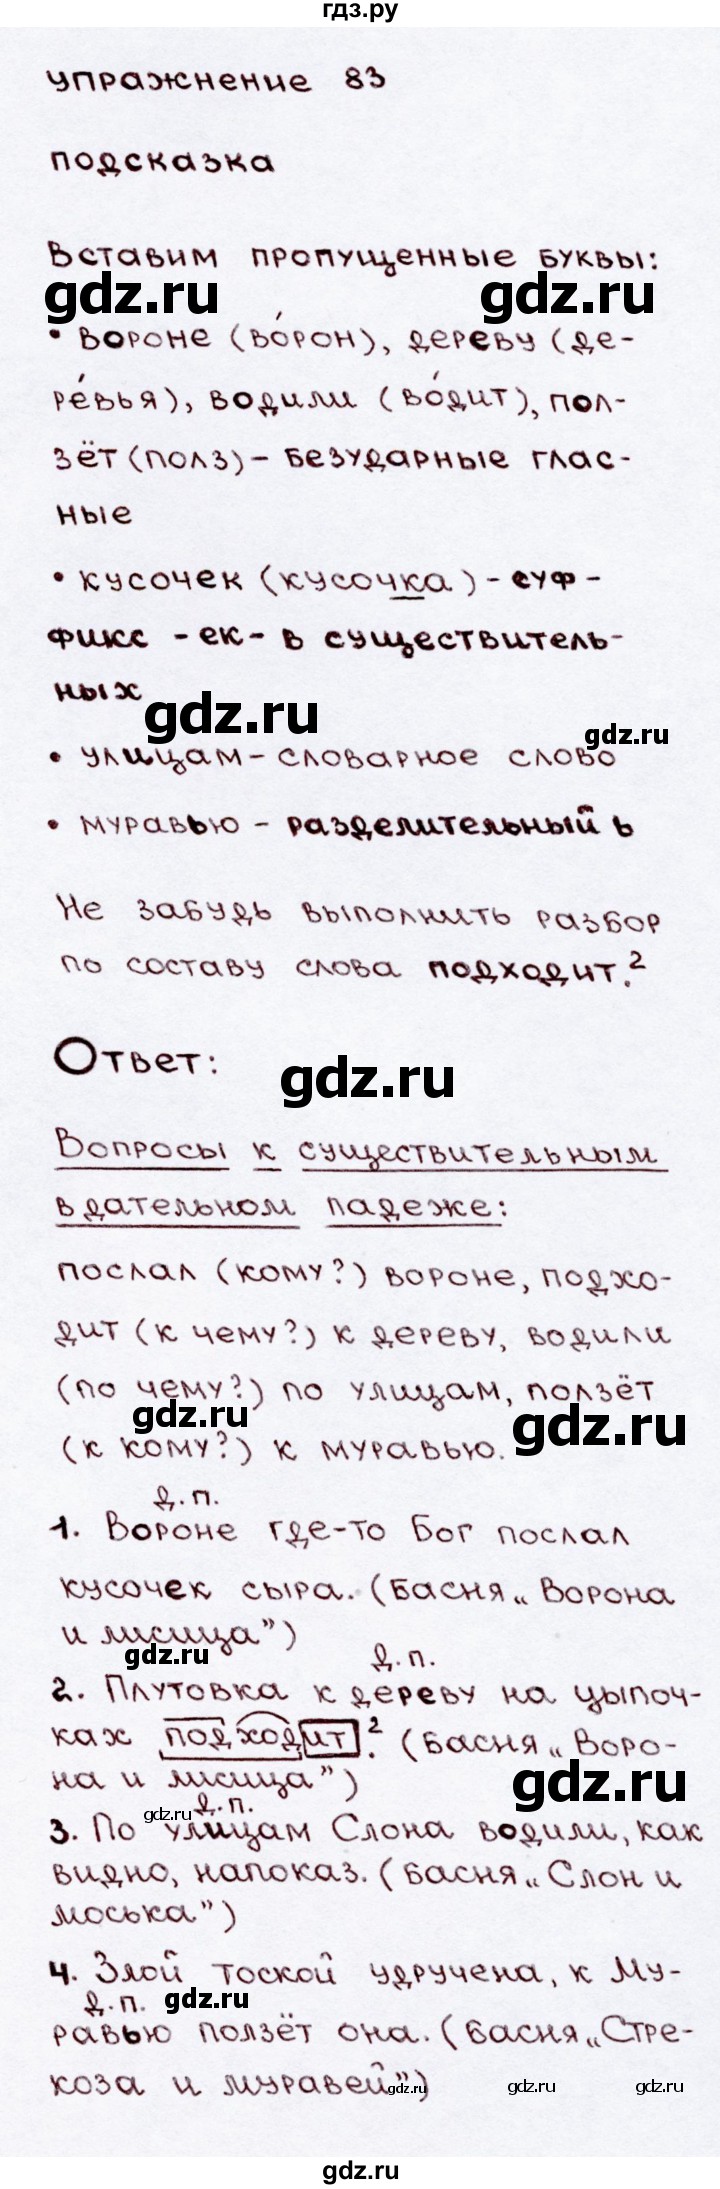 гдз.ру
упражнение 83
подсказка
Вставим пропущенные буквы:
gdz.ru gdz.ru
• вороне (во́рон), дереву (де-
ре́вья), водили (во́дит), пол-
зёт (полз) - безударные глас-
ные
• кусочек (кусочка) - суф-
фикс -ек- в существитель-
ных
gdz.ru gdz.ru
• улицам - словарное слово
• муравью - разделительный ь
Не забудь выполнить разбор
по составу слова подходит.²
Ответ:
gdz.ru
Вопросы к существительным
в дательном падеже:
послал (кому?) вороне, подхо-
дит (к чему?) к дереву, водили
(по чему?) по улицам, ползёт
gdz.ru gdz.ru
(к кому?) к муравью.
д.п.
1. Вороне где-то Бог послал
кусочек сыра. (Басня „Ворона
и лисица”)
gdz.ru
д.п.
2. Плутовка к дереву на цыпоч-
ках подходит². (Басня „Воро-
на и лисица”)
gdz.ru
gdz.ru
д.п.
3. По улицам Слона водили, как
видно, напоказ. (Басня „Слон и
моська”)
4. Злой тоской удручена, к Му-
д.п. gdz.ru
равью ползёт она. (Басня „Стре-
коза и муравей”)
gdz.ru gdz.ru gdz.ru
gdz.ru